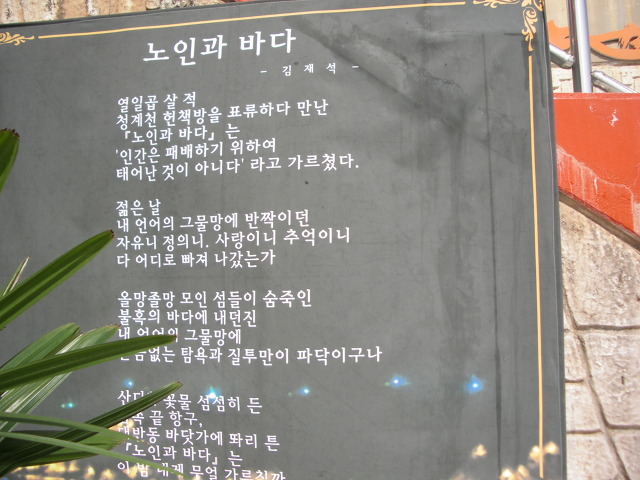 노인과 바다
- 김 재 석 -
열일곱 살 적
청계천 헌책방을 표류하다 만난
『노인과 바다』는
'인간은 패배하기 위하여
태어난 것이 아니다' 라고 가르쳤다.
젊은 날
내 언어의 그물망에 반짝이던
자유니 정의니, 사랑이니 추억이니
다 어디로 빠져 나갔는가
올망졸망 모인 섬들이 숨죽인
불혹의 바다에 내던진
내 언어의 그물망에
탐욕과 질투만이 파닥이구나
꽃물 섬섬히 든
끝 항구,
바닷가에 똬리 튼
『노인과 바다』는
이 밤 내게 무얼 가르칠까